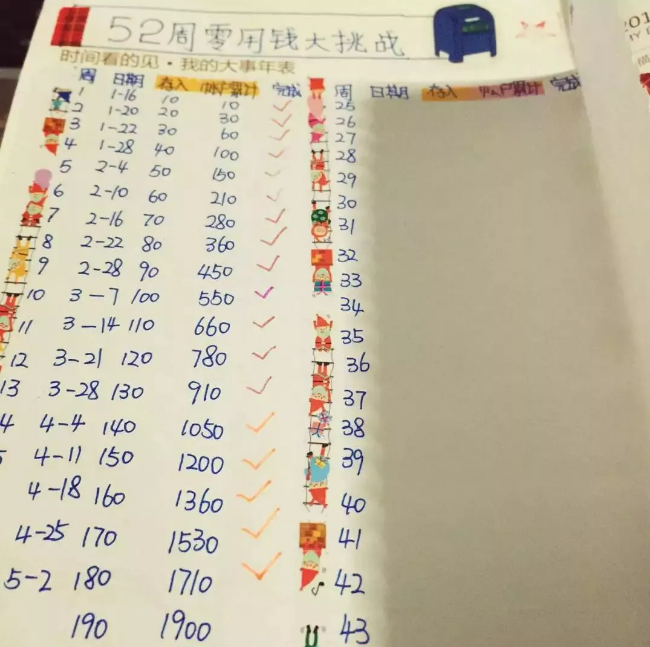 52周零用钱大挑战
时间看的见·我的大事年表
周 日期 存入 帐户累计 完成
1 1-16 10 10
2 1-20 20 30
3 1-22 30 60
4 1-28 40 100
5 2-4 50 150
6 2-10 60 210
7 2-16 70 280
8 2-22 80 360
9 2-28 90 450
10 3-7 100 550
11 3-14 110 660
12 3-21 120 780
13 3-28 130 910
4 4-4 140 1050
4-11 150 1200
4-18 160 1360
4-25 170 1530
5-2 180 1710
190 1900
周 日期 存入 帐户累计 完成
25
26
27
28
29
30
31
32
33
34
35
36
37
38
39
40
41
42
43